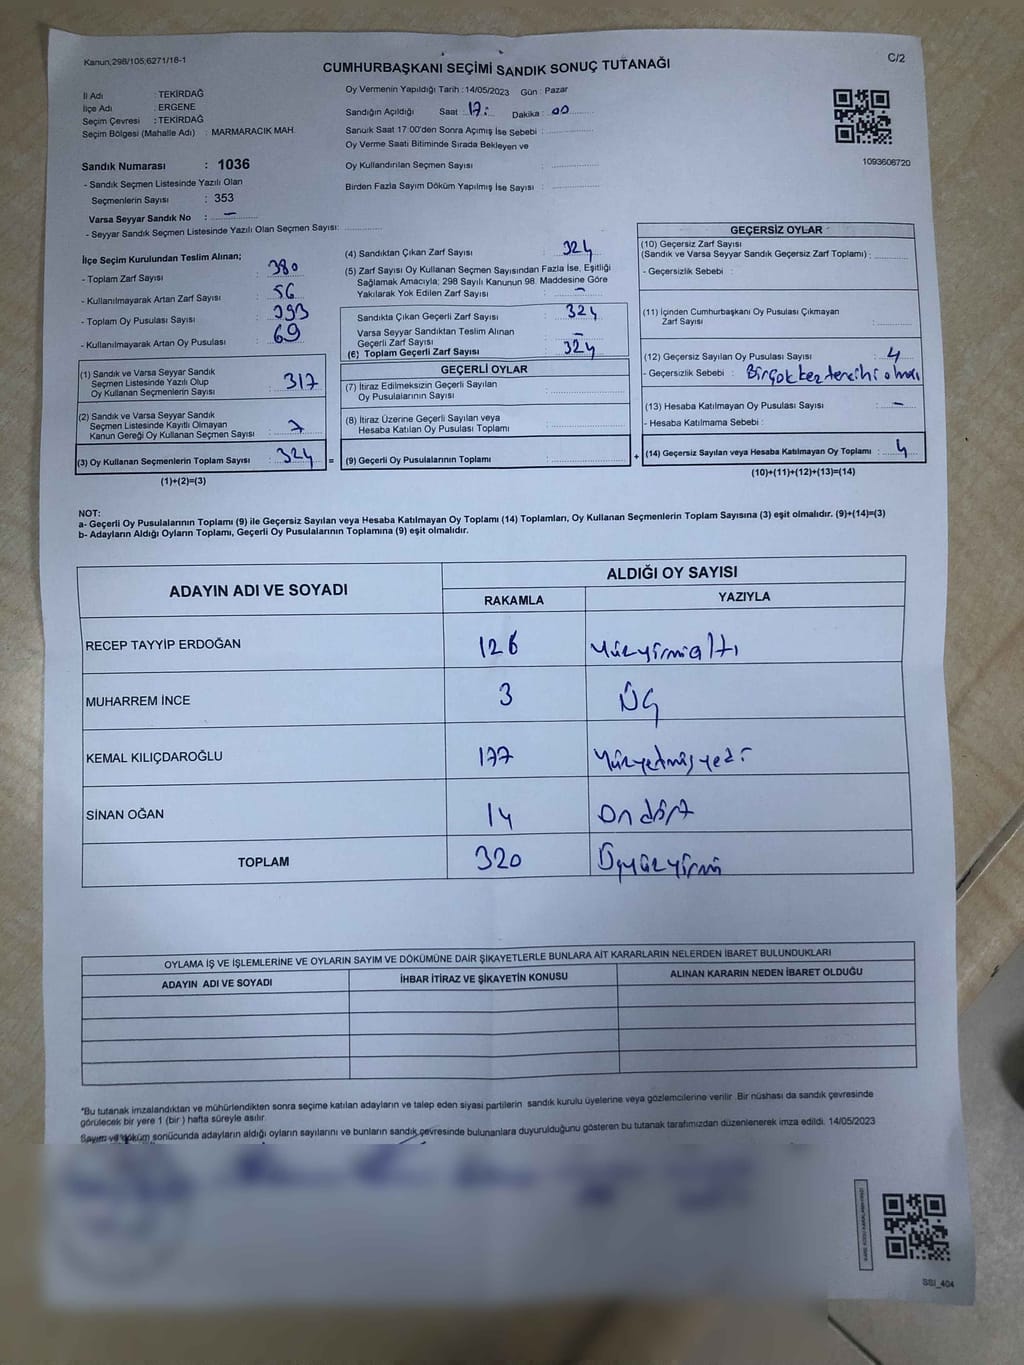 Kanun;298/105;6271/16-1
C/2
CUMHURBAŞKANI SEÇİMİ SANDIK SONUÇ TUTANAĞI
İl Adı : TEKİRDAĞ
İlçe Adı : ERGENE
Seçim Çevresi : TEKİRDAĞ
Seçim Bölgesi (Mahalle Adı) : MARMARACIK MAH.
Oy Vermenin Yapıldığı Tarih : 14/05/2023 Gün : Pazar
Sandığın Açıldığı Saat : 17: Dakika : 00
Sandık Saat 17:00'den Sonra Açımış İse Sebebi :
Oy Verme Saati Bitiminde Sırada Bekleyen ve
Oy Kullandırılan Seçmen Sayısı :
Birden Fazla Sayım Döküm Yapılmış İse Sayısı :
1093606720
Sandık Numarası : 1036
- Sandık Seçmen Listesinde Yazılı Olan
Seçmenlerin Sayısı : 353
Varsa Seyyar Sandık No : -
- Seyyar Sandık Seçmen Listesinde Yazılı Olan Seçmen Sayısı:
İlçe Seçim Kurulundan Teslim Alınan;
- Toplam Zarf Sayısı : 380
- Kullanılmayarak Artan Zarf Sayısı : 56
- Toplam Oy Pusulası Sayısı : 393
- Kullanılmayarak Artan Oy Pusulası : 69
(1) Sandık ve Varsa Seyyar Sandık
Seçmen Listesinde Yazılı Olup
Oy Kullanan Seçmenlerin Sayısı : 317
(2) Sandık ve Varsa Seyyar Sandık
Seçmen Listesinde Kayıtlı Olmayan
Kanun Gereği Oy Kullanan Seçmen Sayısı : 7
(3) Oy Kullanan Seçmenlerin Toplam Sayısı : 324
(1)+(2)=(3)
(4) Sandıktan Çıkan Zarf Sayısı : 324
(5) Zarf Sayısı Oy Kullanan Seçmen Sayısından Fazla İse, Eşitliği
Sağlamak Amacıyla; 298 Sayılı Kanunun 98. Maddesine Göre
Yakılarak Yok Edilen Zarf Sayısı : -
Sandıkta Çıkan Geçerli Zarf Sayısı : 324
Varsa Seyyar Sandıktan Teslim Alınan
Geçerli Zarf Sayısı : -
(6) Toplam Geçerli Zarf Sayısı : 324
GEÇERLİ OYLAR
(7) İtiraz Edilmeksizin Geçerli Sayılan
Oy Pusulalarının Sayısı :
(8) İtiraz Üzerine Geçerli Sayılan veya
Hesaba Katılan Oy Pusulası Toplamı :
= (9) Geçerli Oy Pusulalarının Toplamı :
GEÇERSİZ OYLAR
(10) Geçersiz Zarf Sayısı
(Sandık ve Varsa Seyyar Sandık Geçersiz Zarf Toplamı) :
- Geçersizlik Sebebi :
(11) İçinden Cumhurbaşkanı Oy Pusulası Çıkmayan
Zarf Sayısı :
(12) Geçersiz Sayılan Oy Pusulası Sayısı : 4
- Geçersizlik Sebebi : Birçok kez tercihi olması
(13) Hesaba Katılmayan Oy Pusulası Sayısı : -
- Hesaba Katılmama Sebebi :
+ (14) Geçersiz Sayılan veya Hesaba Katılmayan Oy Toplamı : 4
(10)+(11)+(12)+(13)=(14)
NOT:
a- Geçerli Oy Pusulalarının Toplamı (9) ile Geçersiz Sayılan veya Hesaba Katılmayan Oy Toplamı (14) Toplamları, Oy Kullanan Seçmenlerin Toplam Sayısına (3) eşit olmalıdır. (9)+(14)=(3)
b- Adayların Aldığı Oyların Toplamı, Geçerli Oy Pusulalarının Toplamına (9) eşit olmalıdır.
ADAYIN ADI VE SOYADI
ALDIĞI OY SAYISI
RAKAMLA YAZIYLA
RECEP TAYYİP ERDOĞAN 126 Yüzyirmialtı
MUHARREM İNCE 3 Üç
KEMAL KILIÇDAROĞLU 177 Yüzyetmişyedi
SİNAN OĞAN 14 On dört
TOPLAM 320 Üçyüzyirmi
OYLAMA İŞ VE İŞLEMLERİNE VE OYLARIN SAYIM VE DÖKÜMÜNE DAİR ŞİKAYETLERLE BUNLARA AİT KARARLARIN NELERDEN İBARET BULUNDUKLARI
ADAYIN ADI VE SOYADI İHBAR İTİRAZ VE ŞİKAYETİN KONUSU ALINAN KARARIN NEDEN İBARET OLDUĞU
*Bu tutanak imzalandıktan ve mühürlendikten sonra seçime katılan adayların ve talep eden siyasi partilerin sandık kurulu üyelerine veya gözlemcilerine verilir. Bir nüshası da sandık çevresinde
görülecek bir yere 1 (bir ) hafta süreyle asılır.
Sayım ve döküm sonucunda adayların aldığı oyların sayılarını ve bunların sandık çevresinde bulunanlara duyurulduğunu gösteren bu tutanak tarafımızdan düzenlenerek imza edildi. 14/05/2023
SSI_404